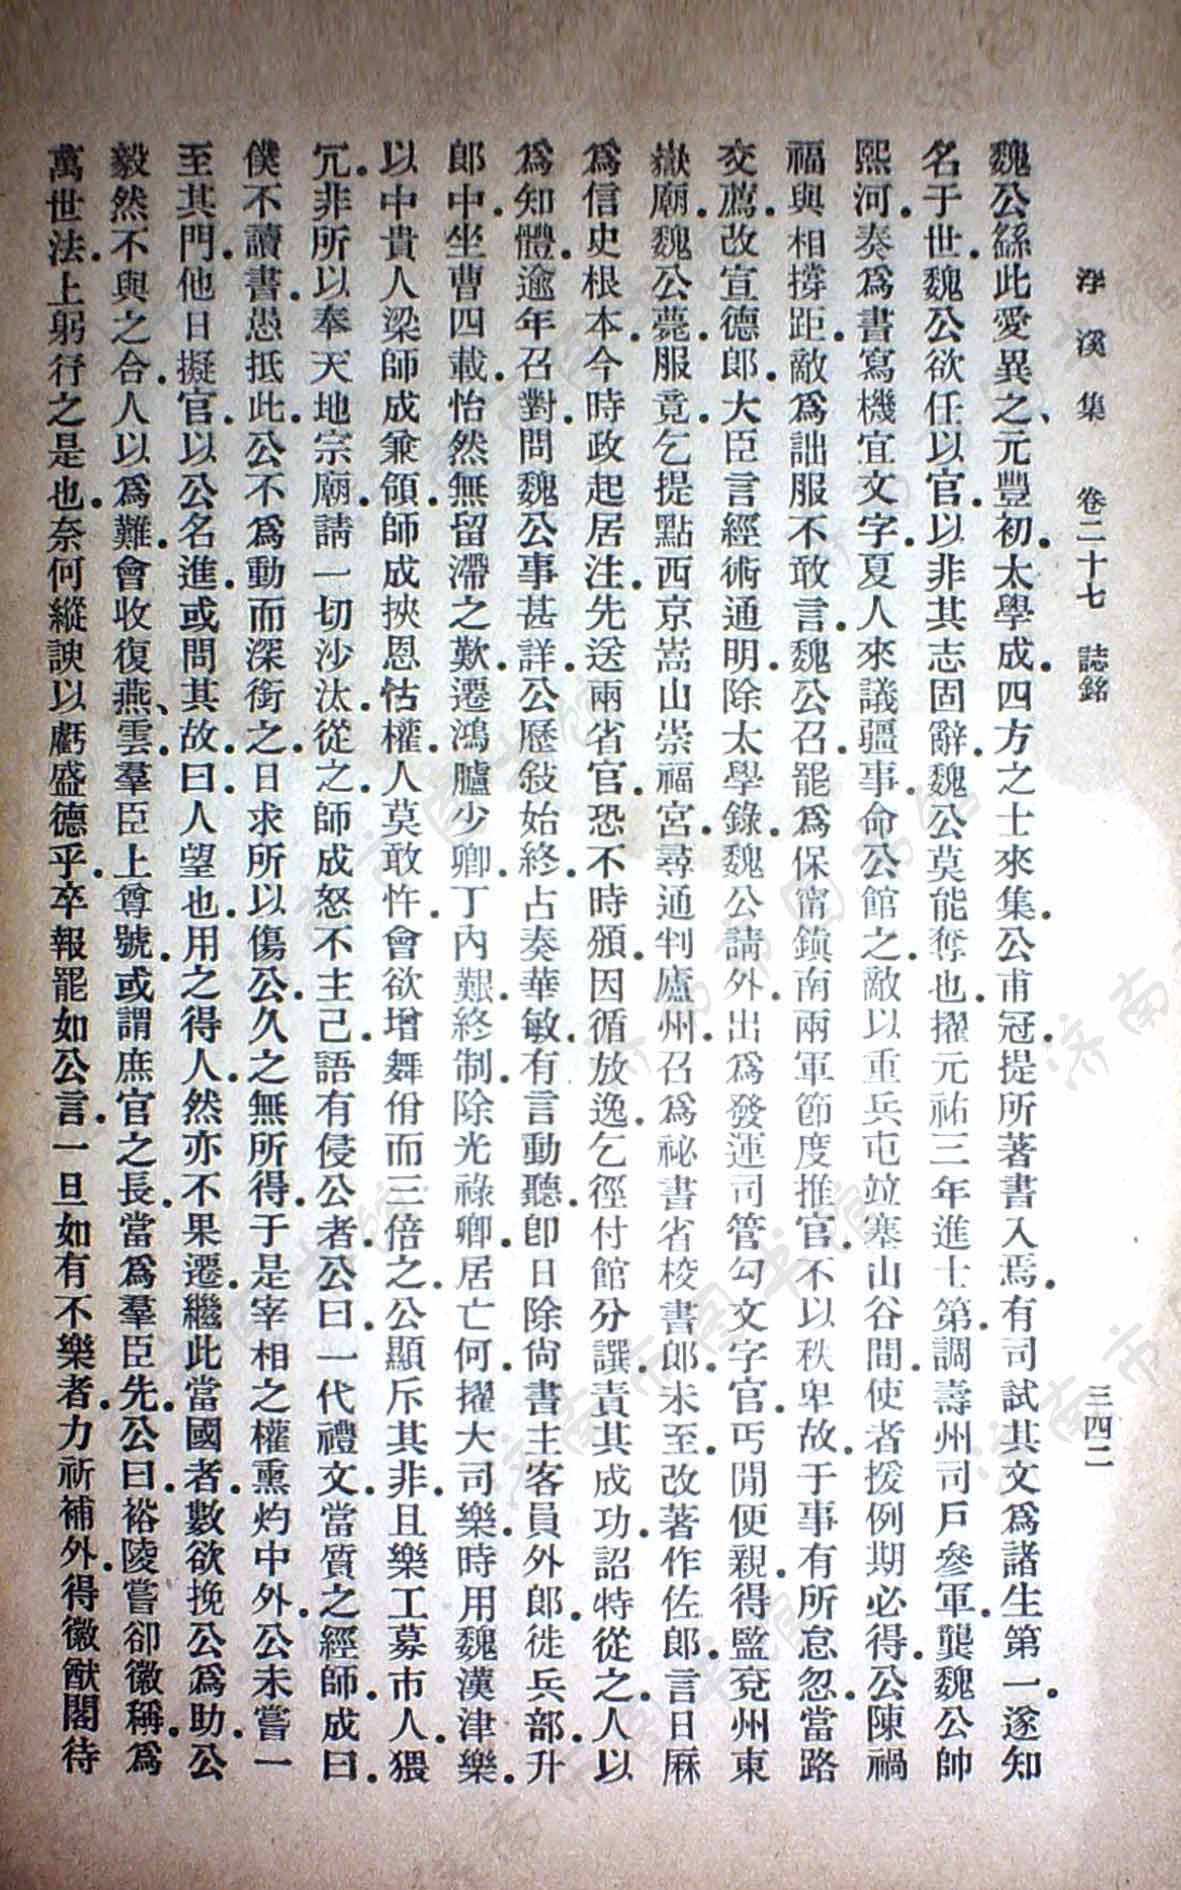 浮溪集　卷二十七　誌銘　三四二
魏公繇此愛異之、元豐初．太學成．四方之士來集．公甫冠．提所著書入焉．有司試其文爲諸生第一．遂知
名于世．魏公欲任以官．以非其志固辭．魏公莫能奪也．擢元祐三年進士第．調壽州司戶參軍．龔魏公帥
熙河．奏爲書寫機宜文字．夏人來議疆事．命公館之．敵以重兵屯竝塞山谷間．使者援例期必得．公陳禍
福與相撐距．敵爲詘服不敢言．魏公召．罷爲保甯鎭南兩軍節度推官．不以秩卑故．于事有所怠忽．當路
交薦．改宣德郎．大臣言經術通明．除太學錄．魏公請外．出爲發運司管勾文字官．丐閒便親．得監兗州東
嶽廟．魏公薨．服竟．乞提點西京嵩山崇福宮．尋通判廬州．召爲祕書省校書郎．未至．改著作佐郎．言日厤
爲信史根本．今時政起居注．先送兩省官．恐不時頒．因循放逸．乞徑付館分譔．責其成功．詔特從之．人以
爲知體．逾年召對．問魏公事甚詳．公歷敍始終．占奏華敏．有言動聽．卽日除尙書主客員外郎．徙兵部．升
郎中．坐曹四載．怡然無留滯之歎．遷鴻臚少卿．丁內艱．終制．除光祿卿．居亡何．擢大司樂．時用魏漢津樂．
以中貴人梁師成兼領．師成挾恩怙權．人莫敢忤．會欲增舞佾而三倍之．公顯斥其非．且樂工募市人．猥
冗．非所以奉天地宗廟．請一切沙汰．從之．師成怒不主己．語有侵公者．公曰．一代禮文．當質之經師．成曰．
僕不讀書．愚抵此．公不爲動而深銜之．日求所以傷公．久之無所得．于是宰相之權熏灼中外．公未嘗一
至其門．他日擬官．以公名進．或問其故．曰．人望也．用之得人．然亦不果遷．繼此當國者．數欲挽公爲助．公
毅然不與之合．人以爲難．會收復燕、雲．羣臣上尊號．或謂庶官之長．當爲羣臣先．公曰．裕陵嘗卻徽稱．爲
萬世法．上躬行之是也．奈何縱諛以虧盛德乎．卒報罷如公言．一旦如有不樂者．力祈補外．得徽猷閣待